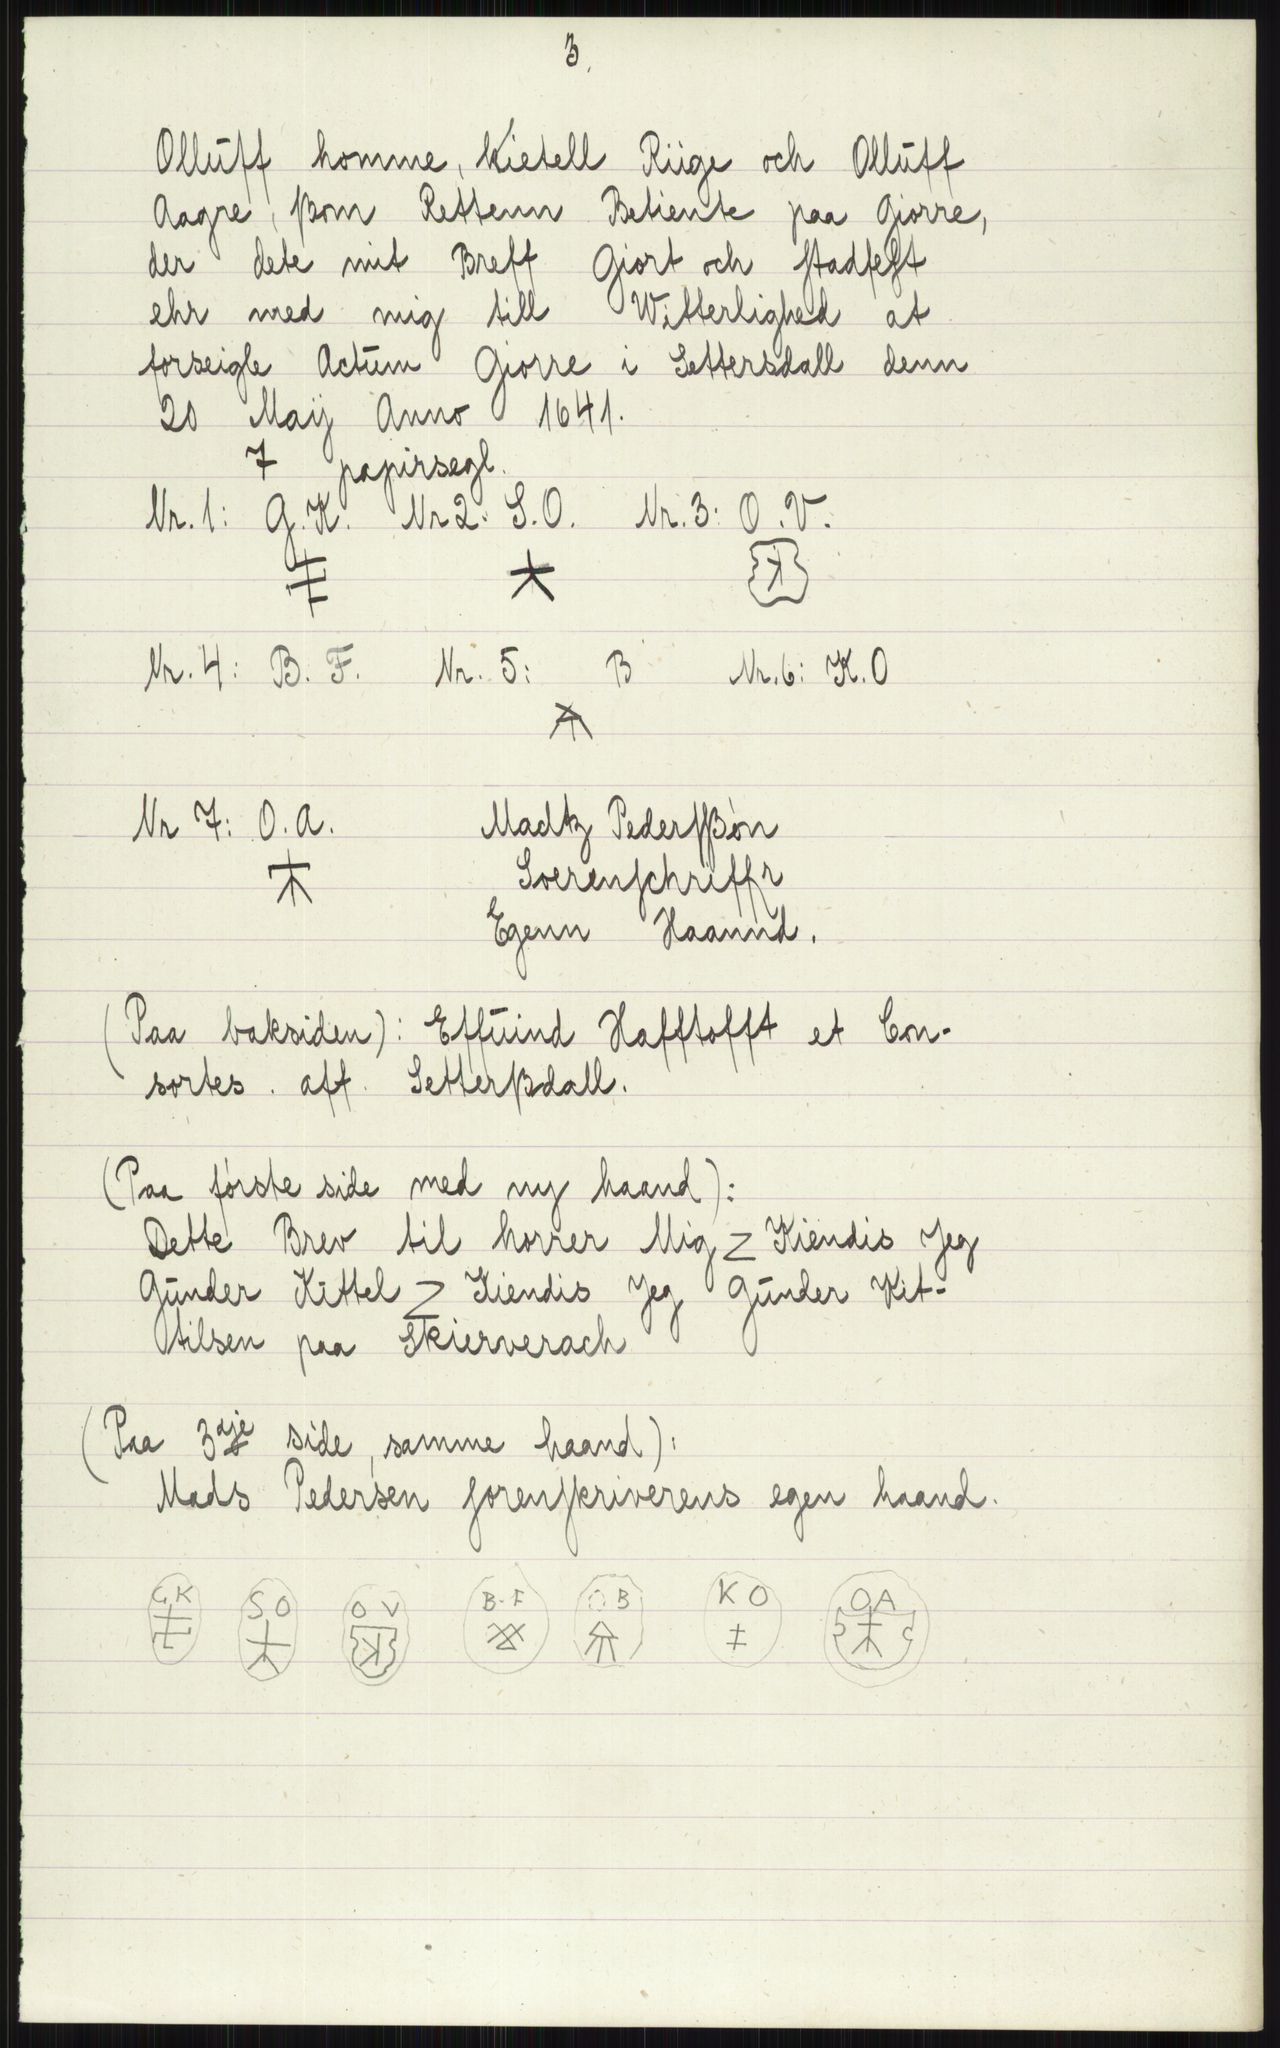 3.
Ollūff homme, Kietell Riige och Ollūff
Aagre, ßom Rettenn Betiente paa Giorre,
der dete mit Breff Giort och stadfest
ehr med mig till Witterlighed at
forseigle Actūm Giorre i Settersdall denn
20 Maij Anno 1641.
7 papirsegl.
Nr. 1: G.K. Nr 2: S.O. Nr. 3: O.V.
Nr. 4: B. F. Nr. 5: B Nr. 6: K.O
Nr 7: O.A. Madtz Pedersßøn
Soerenschriffr
Egenn Haannd.
(Paa baksiden): Effūind Hafftofft et Con-
sortes. aff. Setterßdall.
(Paa første side med ny haand):
Dette Brev til horrer Mig Kiendis Jeg
Gūnder Kittel Kiendis Jeg Gūnder Kit-
tilsen paa Skierverach
(Paa 3dje side, samme haand):
Mads Pedersen sorenskriverens egen haand.
G K S O O V B. F O B K O O A